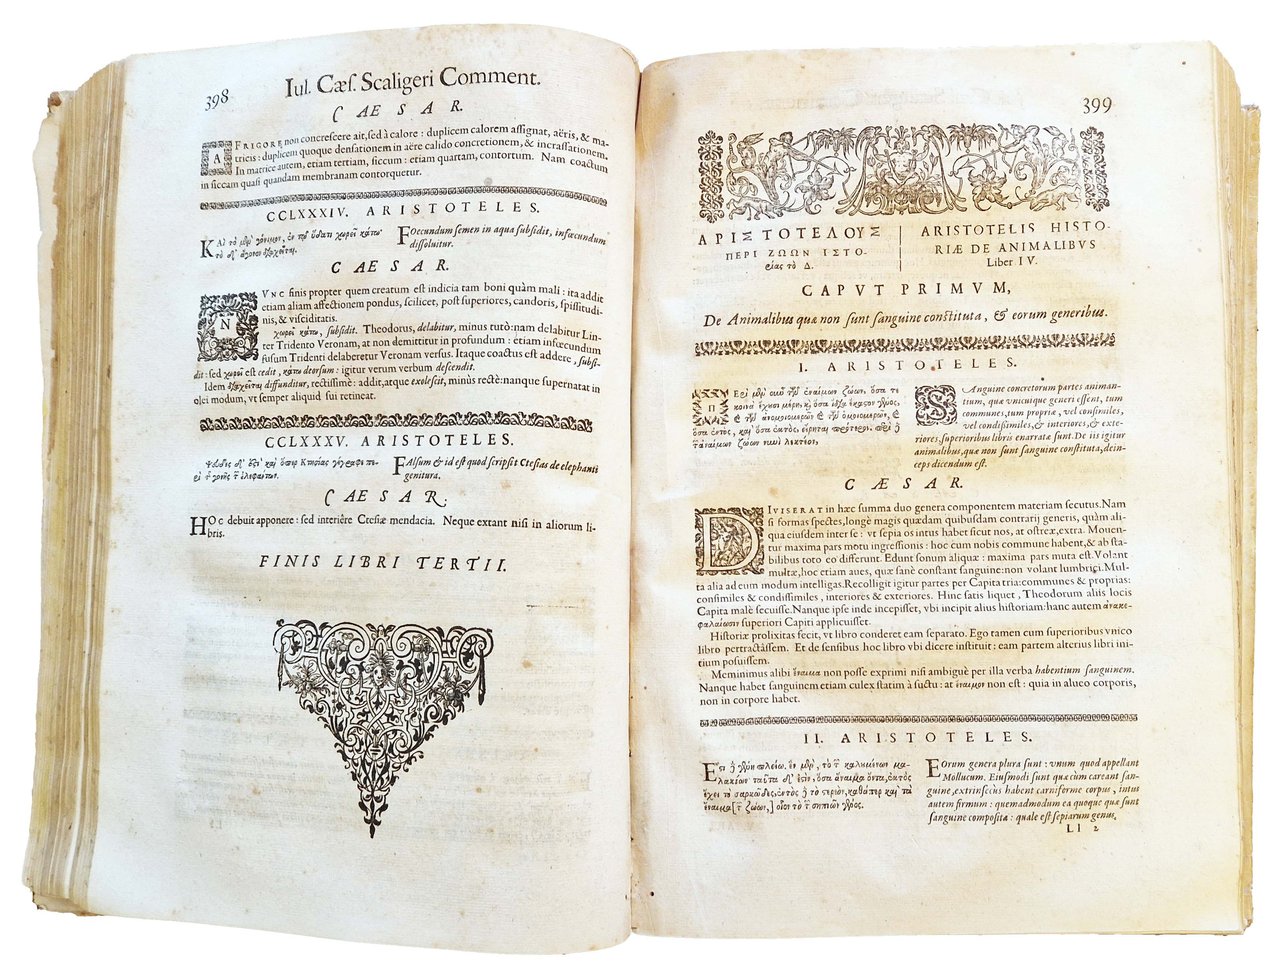 398
Iul. Cæs. Scaligeri Comment.
CAESAR.
A FRIGORE non concrescere ait, sed à calore : duplicem calorem assignat, aëris, & ma-
tricis : duplicem quoque densationem in aëre calido concretionem, & incrassationem.
In matrice autem, etiam tertiam, siccum : etiam quartam, contortum. Nam coactum
in siccam quasi quandam membranam contorquetur.
CCLXXXIV. ARISTOTELES.
Foecundum semen in aqua subsidit, infœcundum
dissoluitur.
CAESAR.
NVNC finis propter quem creatum est indicia tam boni quàm mali : ita addit
etiam aliam affectionem pondus, scilicet, post superiores, candoris, spissitudi-
nis, & visciditatis.
χωροῖ κάτω, subsidit. Theodorus, delabitur, minus tutò : nam delabitur Lin-
ter Tridento Veronam, at non demittitur in profundum : etiam infœcundum
fusum Tridenti delaberetur Veronam versus. Itaque coactus est addere, subsi-
dit : sed χωροῖ est cedit, κάτω deorsum : igitur verum verbum descendit.
Idem διαχεῖται diffunditur, rectissimè : addit, atque exolescit, minùs rectè : nanque supernatat in
olei modum, vt semper aliquid sui retineat.
CCLXXXV. ARISTOTELES.
Falsum & id est quod scripsit Ctesias de elephanti
genitura.
CAESAR.
HOc debuit apponere : sed interiêre Ctesiæ mendacia. Neque extant nisi in aliorum li-
bris.
FINIS LIBRI TERTII.
399
ΑΡΙΣΤΟΤΕΛΟΥΣ
ΠΕΡΙ ΖΩΩΝ ΙΣΤΟ-
ρίας τὸ Δ.
ARISTOTELIS HISTO-
RIÆ DE ANIMALIBVS
Liber IV.
CAPVT PRIMVM,
De Animalibus quæ non sunt sanguine constituta, & eorum generibus.
I. ARISTOTELES.
SAnguine concretorum partes animan-
tium, quæ vnicuique generi essent, tum
communes, tum propriæ, vel consimiles,
vel condissimiles, & interiores, & exte-
riores, superioribus libris enarratæ sunt. De iis igitur
animalibus, quæ non sunt sanguine constituta, dein-
ceps dicendum est.
CÆSAR.
DIVISERAT in hæc summa duo genera componentem materiam secutus. Nam
si formas spectes, longè magis quædam quibusdam contrarij generis, quàm ali-
qua eiusdem inter se : vt sepia os intus habet sicut nos, at ostrea, extra. Mouen-
tur maxima pars motu ingressionis : hoc cum nobis commune habent, & ab sta-
bilibus toto eo differunt. Edunt sonum aliquæ : maxima pars muta est. Volant
multæ, hoc etiam aues, quæ sanè constant sanguine : non volant lumbrici. Mul-
ta alia ad eum modum intelligas. Recolligit igitur partes per Capita tria : communes & proprias :
consimiles & condissimiles, interiores & exteriores. Hinc satis liquet, Theodorum aliis locis
Capita malè secuisse. Nanque ipse inde incepisset, vbi incipit alius historiam : hanc autem ἀνακε-
φαλαίωσιν superiori Capiti applicuisset.
Historiæ prolixitas fecit, vt libro conderet eam separato. Ego tamen cum superioribus vnico
libro pertractâssem. Et de sensibus hoc libro vbi dicere instituit : eam partem alterius libri ini-
tium posuissem.
Meminimus alibi ἔναιμα non posse exprimi nisi ambiguè per illa verba habentium sanguinem.
Nanque habet sanguinem etiam culex statim à suctu : at ἔναιμον non est : quia in alueo corporis,
non in corpore habet.
II. ARISTOTELES.
Eorum genera plura sunt : vnum quod appellant
Mollucum. Eiusmodi sunt quæcum careant san-
guine, extrinsecus habent carniforme corpus, intus
autem firmum : quemadmodum ea quoque quæ sunt
sanguine composita : quale est sepiarum genus.
Ll 2